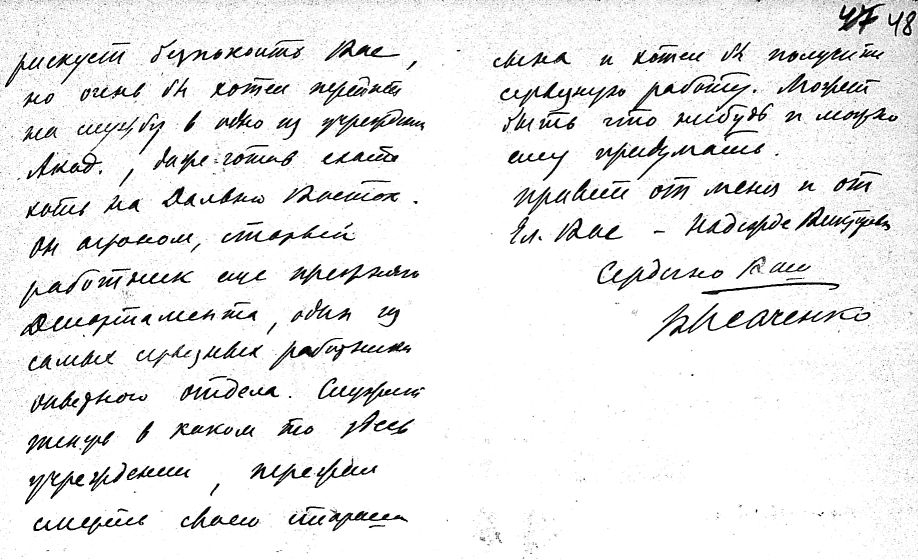 47 48
рискует безпокоить Вас,
но очень бы хотел перейти
на службу в одно из учрежден
Акад., даже готов ехать
хоть на Дальн Восток.
Он агроном, старый
работник еще прежняго
Департамента, один из
самых серьезных работников
опытного отдела. Служит
теперь в каком то здесь
учреждении, пережил
смерть своего старшего
сына и хотел бы получить
серьезную работу. Может
быть что нибудь и можно
ему придумать.
Привет от меня и от
Ел. Вас – Надежде Викторовн
Сердечно Ваш
Б Исаченко